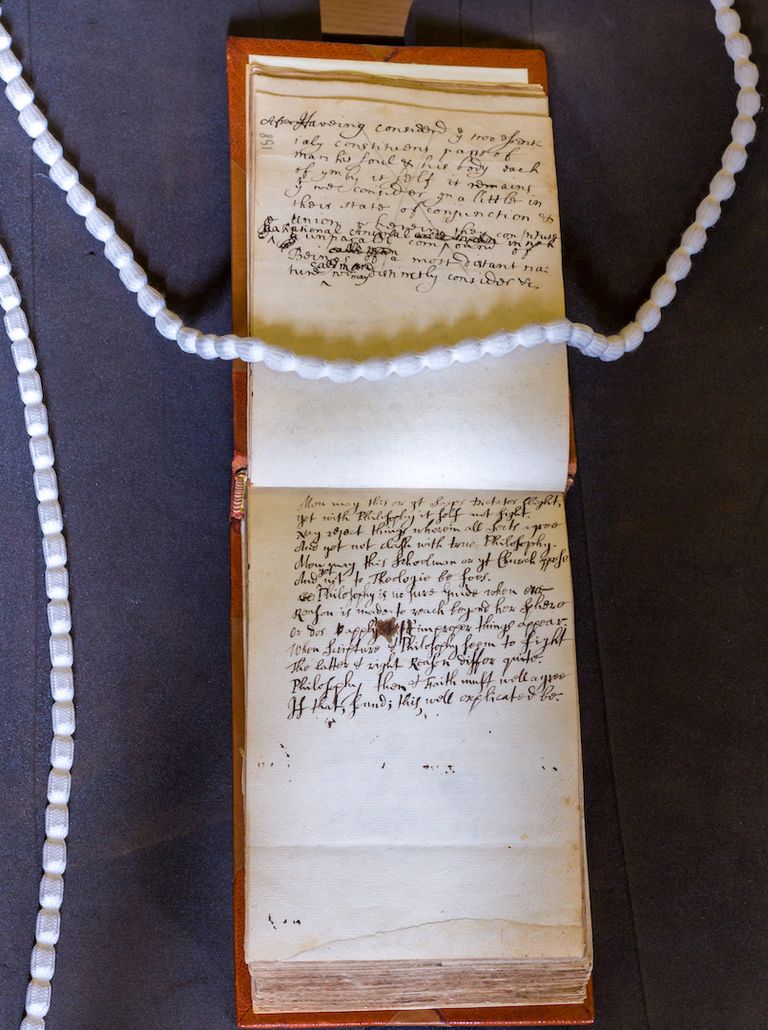 After Haveing considerd ye two essent-
ialy constituent parts of
man his soul & his body each
of ym by it self it remains
yt we consider ym a little in
their state of conjunction &
Union
Rational Animal
unparalel
Being of a most distant na-
ture distinctly consider &c.
158
Men may this or yt Sages Dictates slight,
yet with Philosophy it self not fight.
Nay reject things wherein all Sects agree
And yet not clash with true Philosophy.
Men may this Schoolman or yt Church oppose
And yet to Theologie be foes.
Philosophy is no sure guide when
Reason is made to reach beyond her Sphere
Or dos apply improper things appear.
When Scripture & Philosophy seem to fight
The latter & right Reason differ quite.
Philosophy then & Faith must well agree
If that, sound; this, well explicated be.